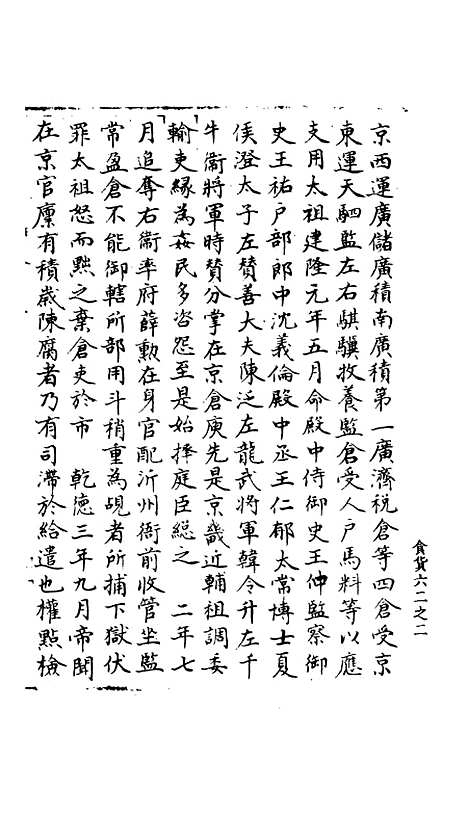 京西運廣儲廣積南廣積第一廣濟稅倉等四倉受京
東運天駟監左右騏驥牧養監倉受人戶馬料等以應
支用太祖建隆元年五月命殿中侍御史王仲監察御
史王祐戶部郎中沈義倫殿中丞王仁郁太常博士夏
侯澄太子左贊善大夫陳泛左龍武將軍韓令升左千
牛衛將軍時贊分掌在京倉庾先是京畿近輔租調委
輸吏緣為姦民多咨怨至是始擇庭臣總之　二年七
月追奪右衛率府薛勲在身官配沂州衙前收管坐監
常盈倉不能御轄所部用斗稍重為覘者所捕下獄伏
罪太祖怒而黜之棄倉吏於市　乾德三年九月帝聞
在京官廩有積歲陳腐者乃有司滯於給遣也權點檢
食貨六二之二